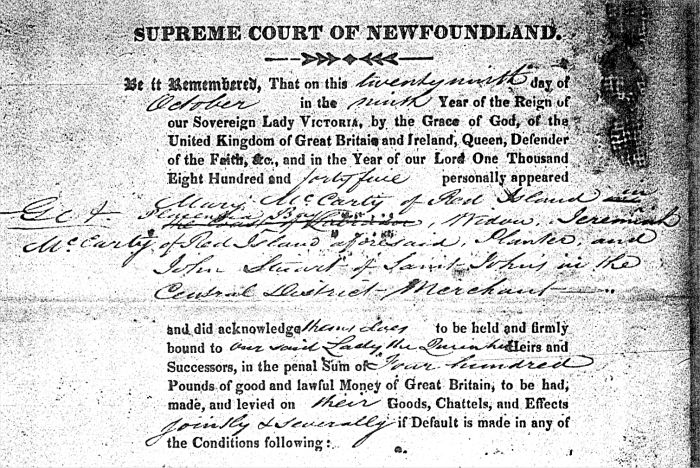 SUPREME COURT OF NEWFOUNDLAND.
Be it Remembered, That on this twenty ninth day of
October in the ninth Year of the Reign of
our Sovereign Lady VICTORIA, by the Grace of God, of the
United Kingdom of Great Britain and Ireland, Queen, Defender
of the Faith, &c., and in the Year of our Lord One Thousand
Eight Hundred and forty five personally appeared
Mary McCarty of Red Island in
Placentia Bay, Widow, Jeremiah
McCarty of Red Island aforesaid, Planter, and
John Stuart of Saint John's in the
Central District Merchant
and did acknowledge themselves to be held and firmly
bound to our said Lady the Queen her Heirs and
Successors, in the penal Sum of Four hundred
Pounds of good and lawful Money of Great Britain, to be had,
made, and levied on their Goods, Chattels, and Effects
jointly & severally if Default is made in any of
the Conditions following: